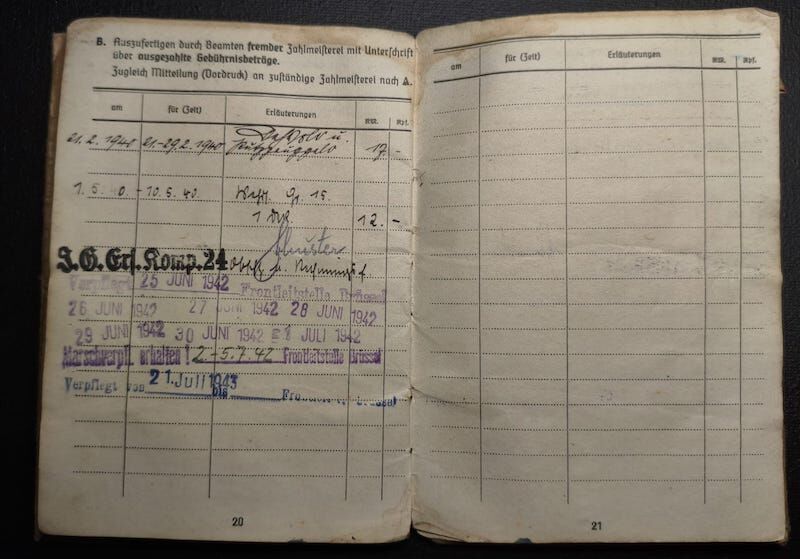 B. Auszufertigen durch Beamten fremder Zahlmeisterei mit Unterschrift
über ausgezahlte Gebührnisbeträge.
Zugleich Mitteilung (Vordruck) an zuständige Zahlmeisterei nach A.
am für (Zeit) Erläuterungen RM. Rpf.
21.2.1940 21.-29.2.1940 u.
17 -
1.5.40. - 10.5.40. Wehrs. Gr. 15.
12. -
J.G. Erf. Komp. 24
Verpflegt 25 JUNI 1942 Frontleitstelle Brüssel
26 JUNI 1942 27 JUNI 1942 28 JUNI 1942
29 JUNI 1942 30 JUNI 1942 JULI 1942
Marschverpfl. erhalten ! 2-5.7.42 Frontleitstelle Brüssel
Verpflegt von 21. Juli 1943 bis
20
am für (Zeit) Erläuterungen RM. Rpf.
21